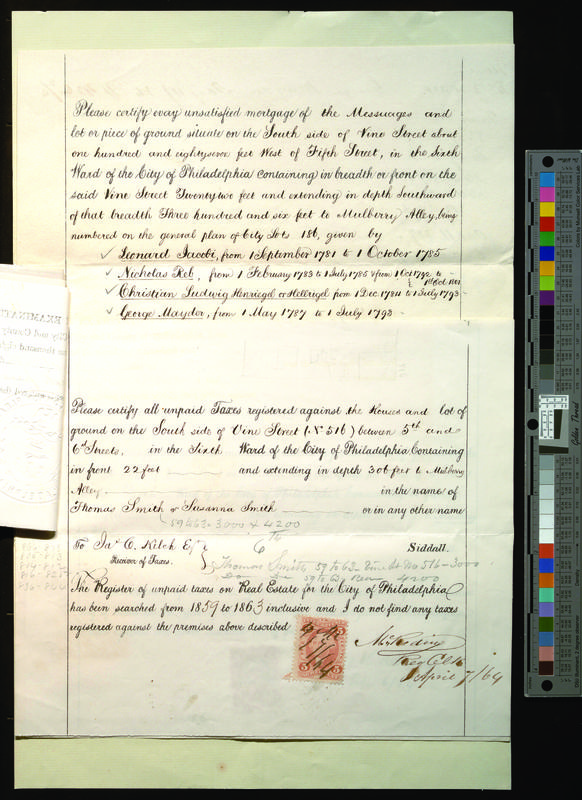 Please certify every unsatisfied mortgage of the Messuages and
lot or piece of ground situate on the South side of Vine Street about
one hundred and eightyseven feet West of Fifth Street, in the Sixth
Ward of the City of Philadelphia Containing in breadth or front on the
said Vine Street Twentytwo feet and extending in depth Southward
of that breadth Three hundred and six feet to Mulberry Alley, being
numbered on the general plan of City Lots 186, given by
✓ Leonard Jacobi, from 1 September 1781 to 1 October 1785
✓ Nicholas Reb, from 1 February 1783 to 1 July 1785 & from 1 Oct 1792 to
1801
✓ Christian Ludwig Henriegel or Hellriegel from 1 Dec. 1784 to 1 July 1793
✓ George Maydor, from 1 May 1787 to 1 July 1793
EXAMINAT
City and County
Please certify all unpaid Taxes registered against the Houses and lot of
ground on the South side of Vine Street (No 516) between 5th and
6th Streets, in the Sixth Ward of the City of Philadelphia Containing
in front 22 feet and extending in depth 306 feet to Mulberry
Alley in the name of
Thomas Smith or Susanna Smith or in any other name
59 to 63 - 3000 & 4200
To Jas. C. Kelch Esqr 6th Siddall.
Receiver of Taxes.
Thomas Smith 59 to 63 - Vine St No 516 - 3000
Do 59 to 63 4200
The Register of unpaid taxes on Real Estate for the City of Philadelphia
has been searched from 1859 to 1863 inclusive and I do not find any taxes
registered against the premises above described
5 5
Reg Clk
April 7/64